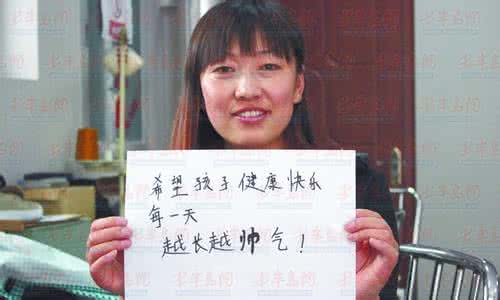 希望孩子健康快乐
每一天
越长越帅气！